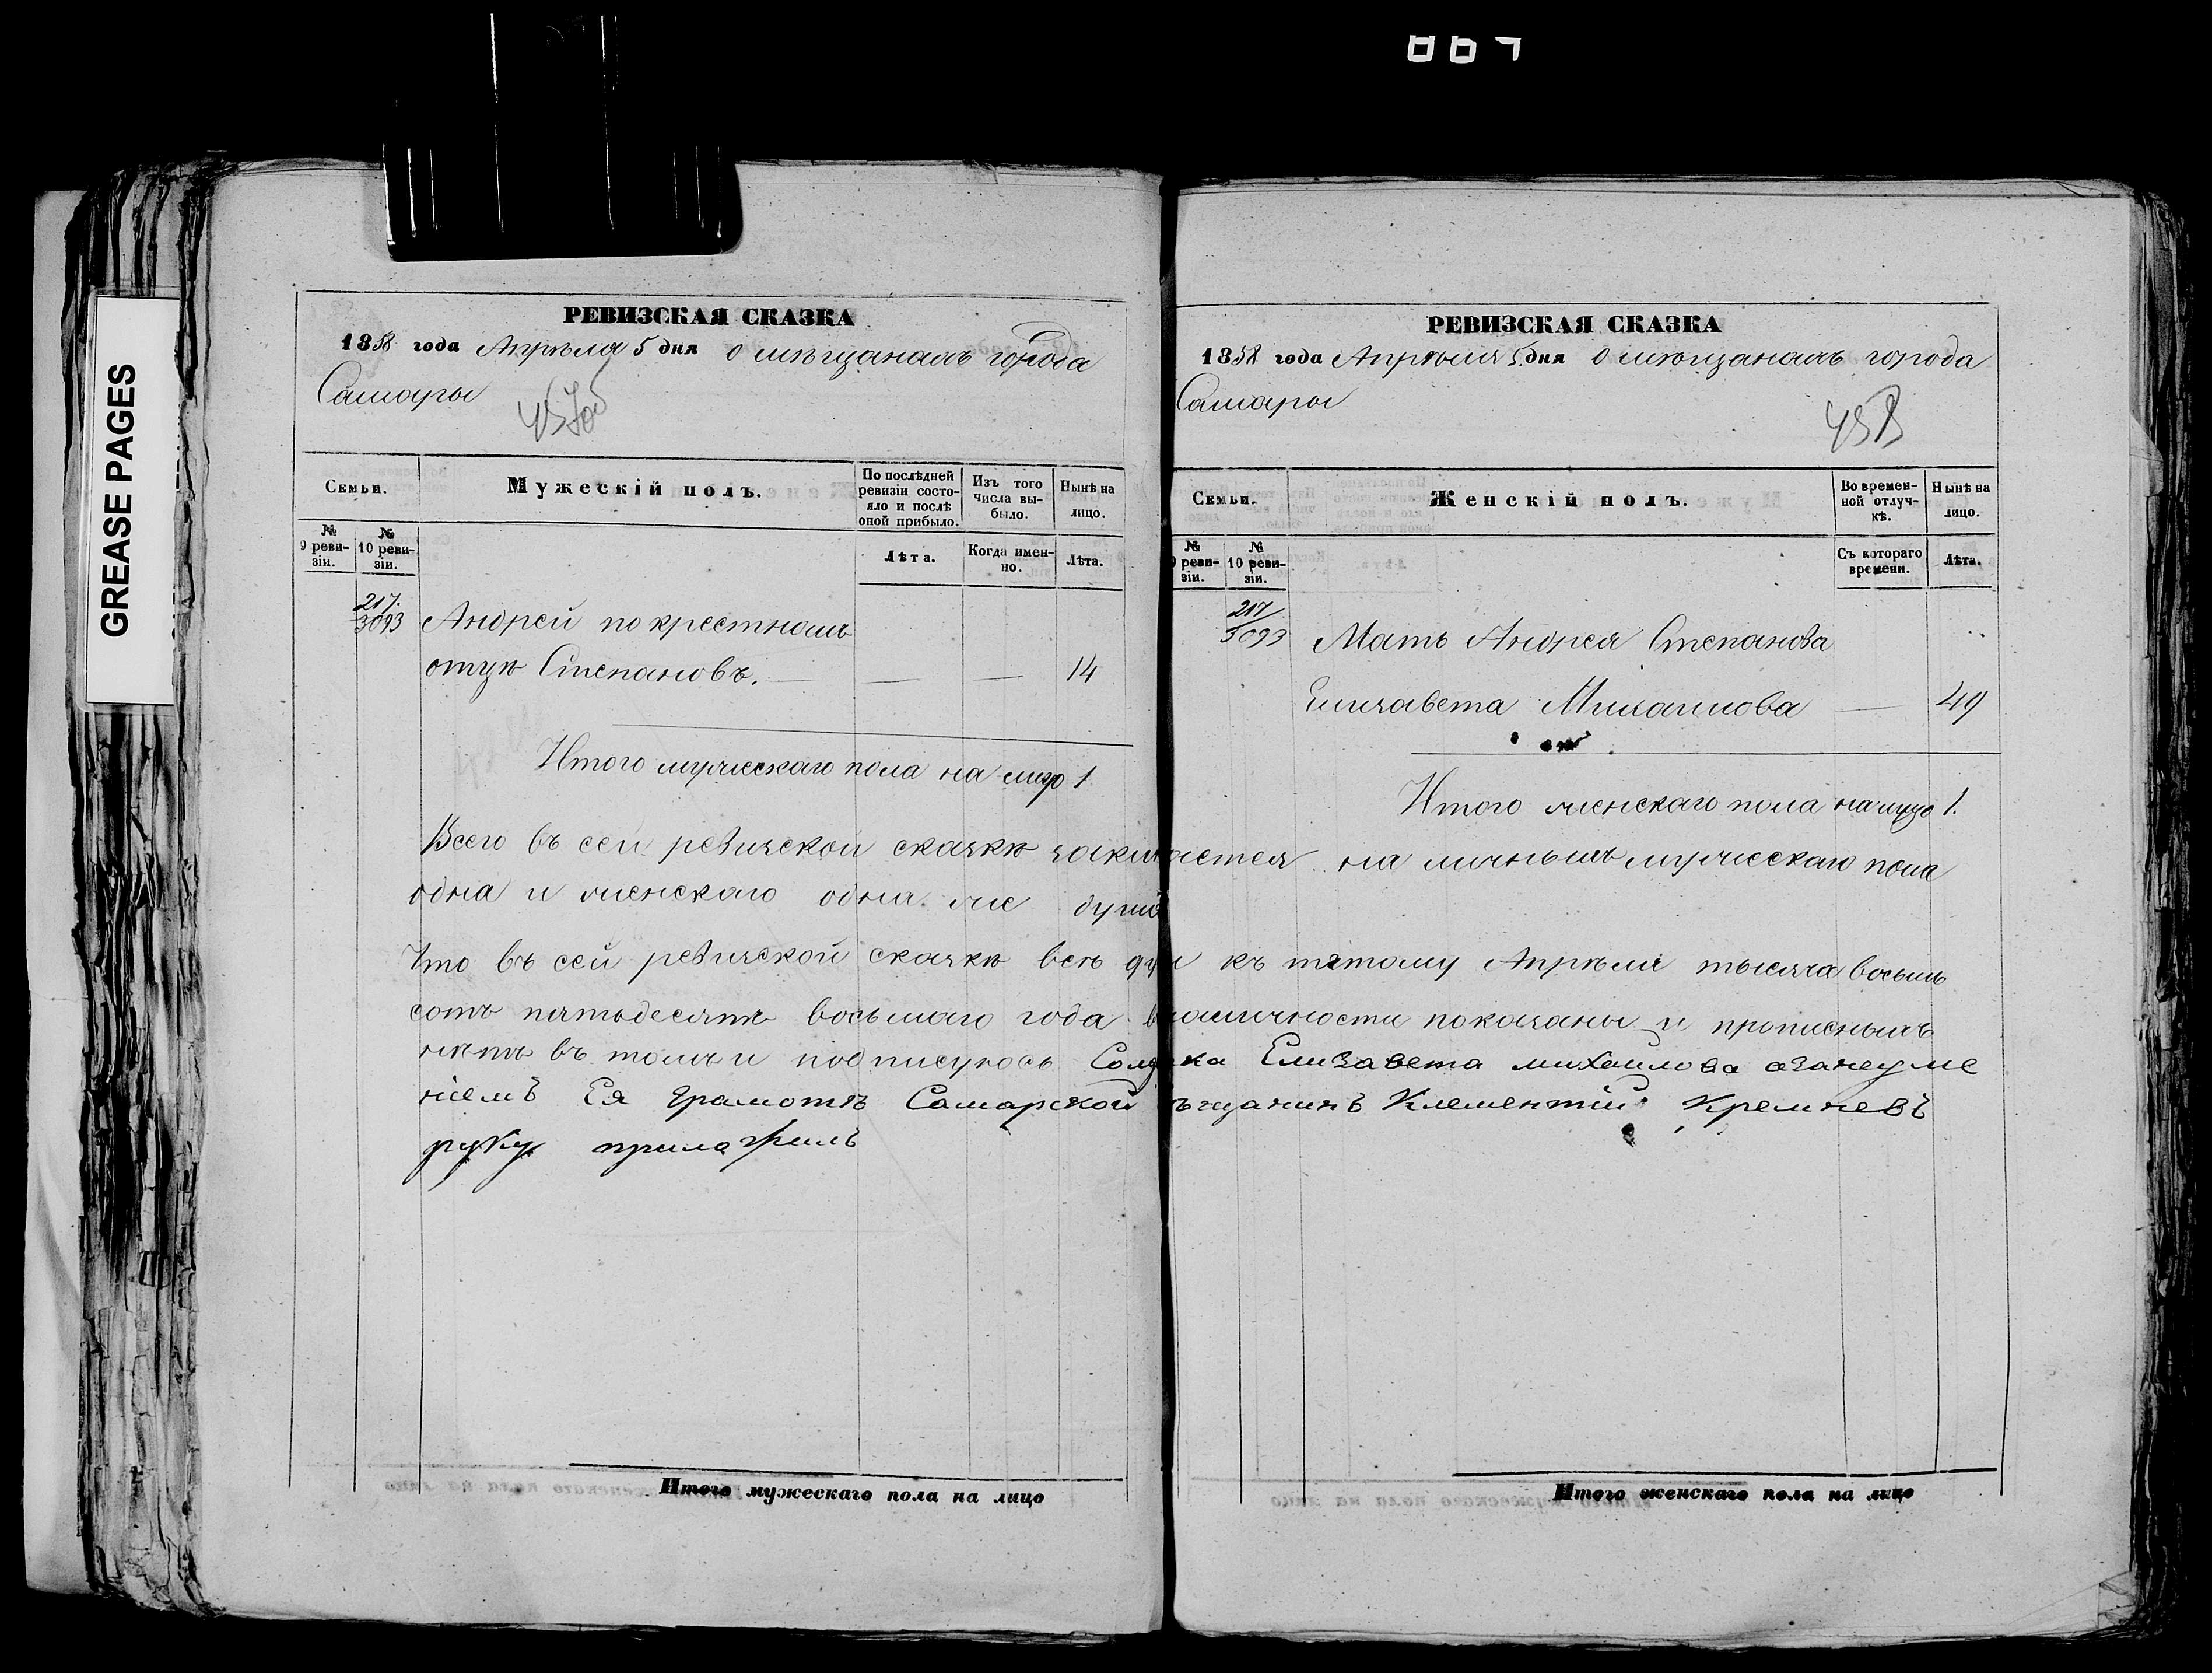 GREASE PAGES
РЕВИЗСКАЯ СКАЗКА
1858 года Апрѣля 5 дня о мѣщанахъ города
Самары
457об
Семьи.
Мужескій полъ.
По послѣдней ревизіи состояло и послѣ оной прибыло.
Изъ того числа выбыло.
Нынѣ на лицо.
№ 9 ревизіи.
№ 10 ревизіи.
Лѣта.
Когда именно.
Лѣта.
217.
3093
Андрей по крестномъ
отцѣ Степановъ. — — — 14
Итого мужескаго пола на лицо 1
РЕВИЗСКАЯ СКАЗКА
1858 года Апрѣля 5 дня о мѣщанахъ города
Самары
458
Семьи.
Женскій полъ.
Во временной отлучкѣ.
Нынѣ на лицо.
9 ревизіи.
№ 10 ревизіи.
Съ котораго времени.
Лѣта.
217/
3093
Мать Андрея Степанова
Елизавета Михаилова — 49
Итого женскаго пола на лицо 1.
Всего въ сей ревизской сказкѣ заключается на личныхъ мужескаго пола
одна и женскаго одна же душа
Что въ сей ревизской сказкѣ всѣ души къ пятому Апрѣля тысяча восемь
сотъ пятьдесятъ восьмаго года в наличности показаны и прописныхъ
нѣтъ въ томъ и подписуюсь Солдатка Елизавета михаилова азанеуме
ніемъ Ея Грамотѣ Самарской мѣщанинъ Клементій Кремневъ
руку приложилъ
Итого мужескаго пола на лицо
Итого женскаго пола на лицо